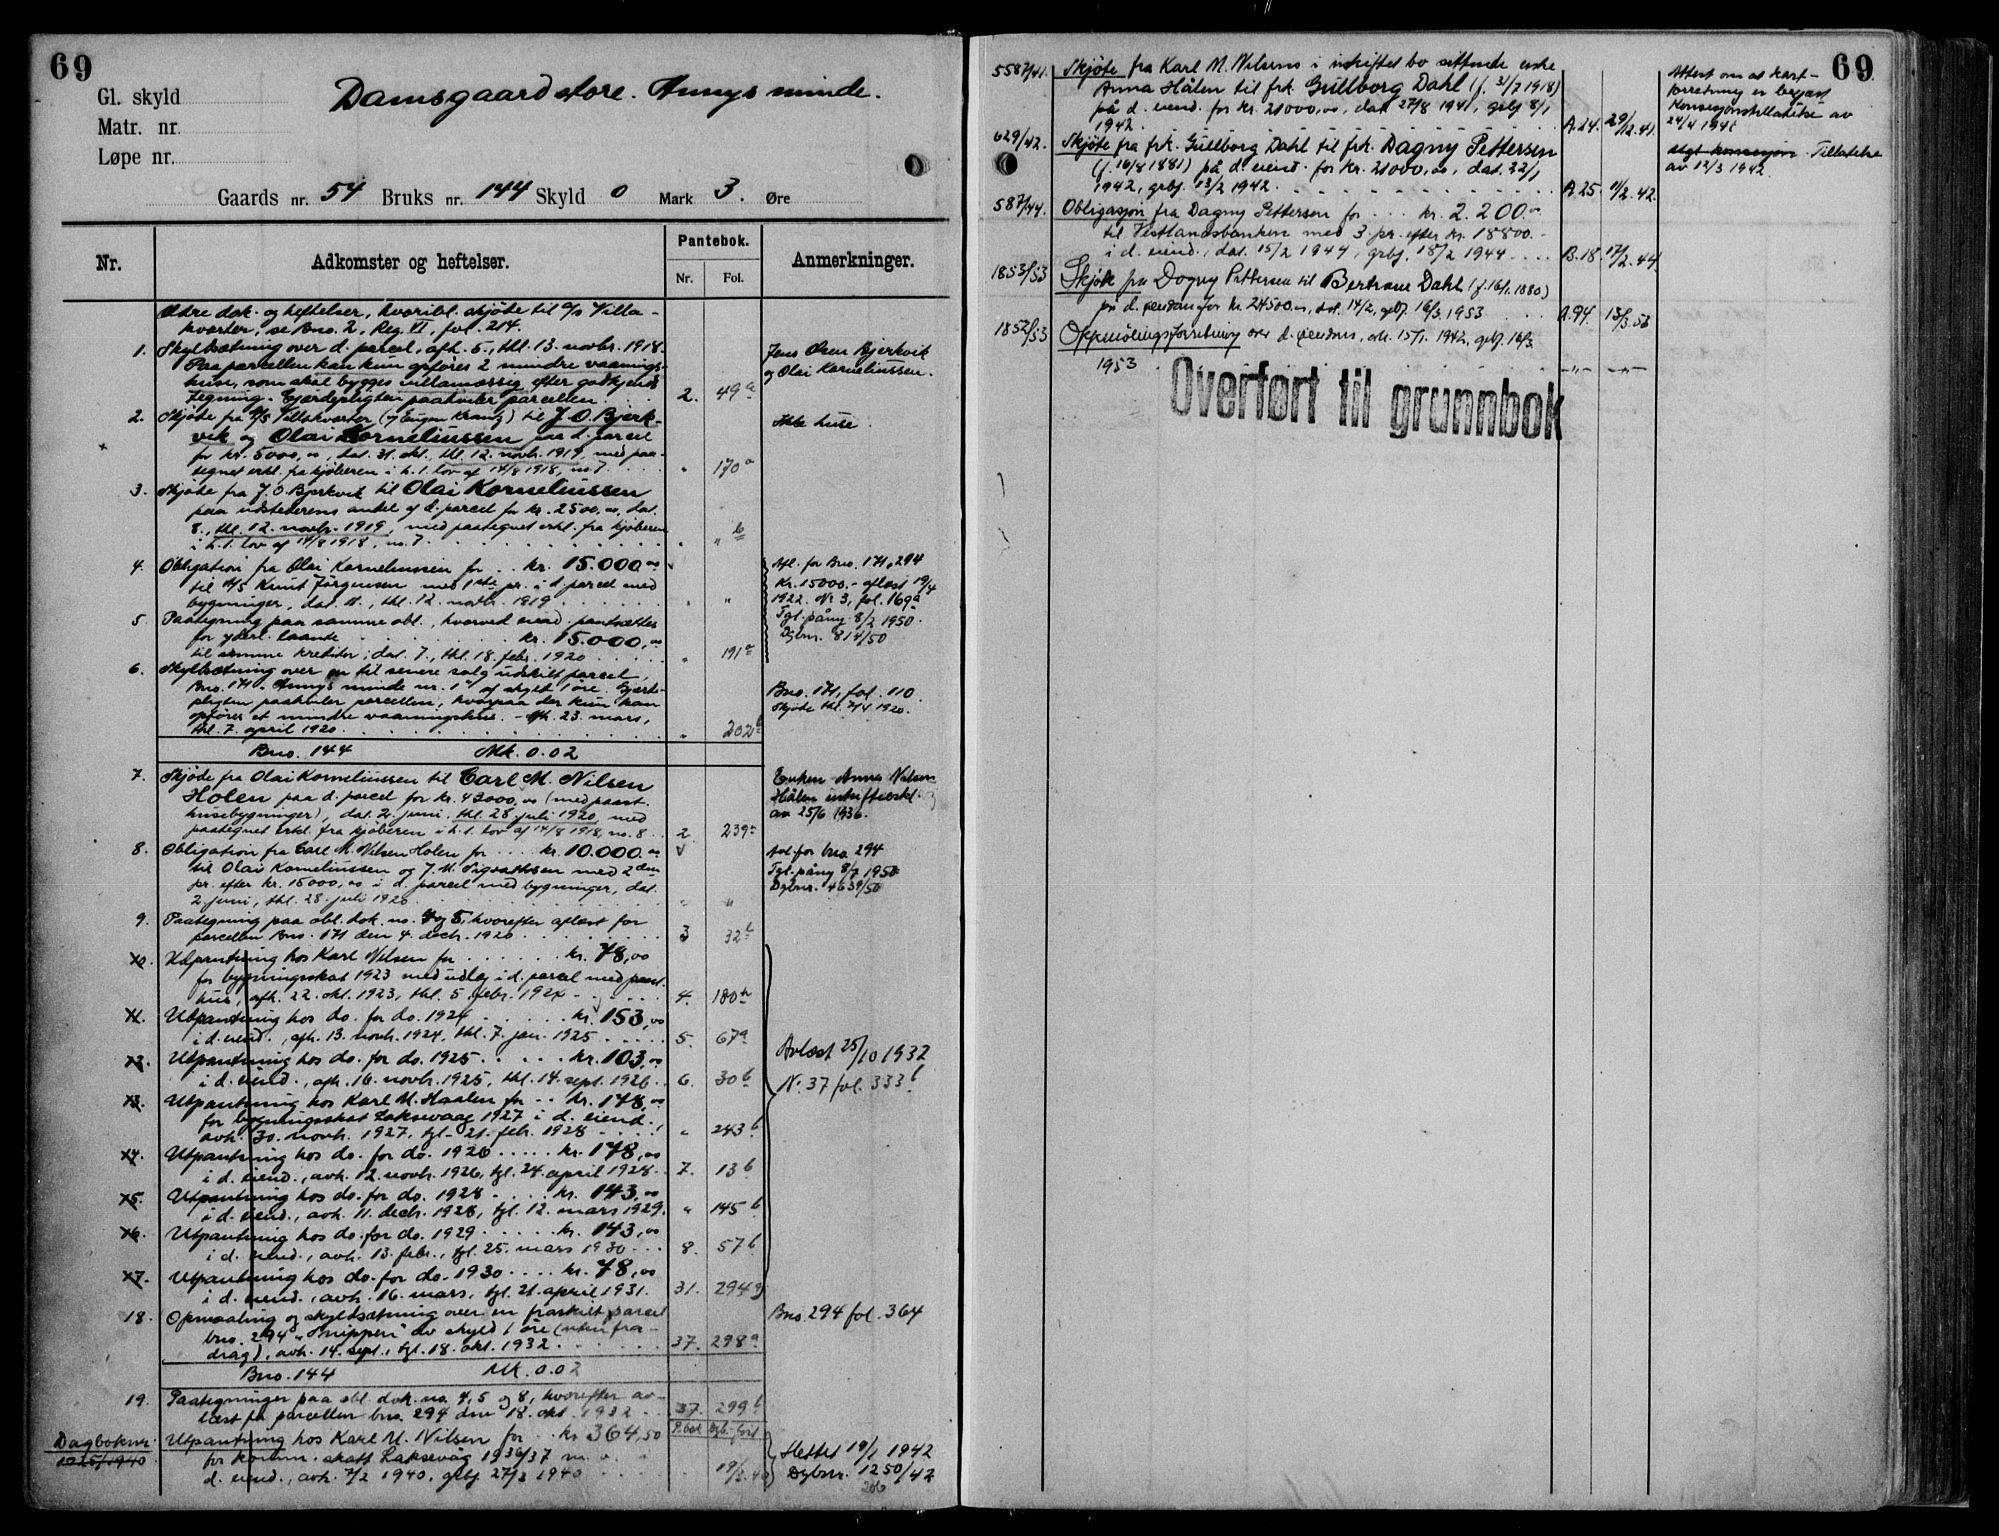 69
Gl. skyld
Matr. nr.
Løpe nr.
Damsgaard store. Annys minde.
Gaards nr. 54 Bruks nr. 144 Skyld 0 Mark 3. Øre
Nr.
Adkomster og heftelser.
Pantebok.
Nr. Fol.
Anmerkninger.
Ældre dok. og heftelser, hvoribl. skjøte til A/S Villa-
kvarter, se Bno. 2, Reg. VI, fol. 214.
1. Skyldsætning over d. parcel, afh. 5., thl. 13. novbr. 1918.
Paa parcellen kan kun opføres 2 mindre vaanings-
huse, som skal bygges villamæssig efter godkjendt
tegning. Gjærdepligten paahviler parcellen. 2. 49a
Jens Olsen Bjerkvik
og Olai Korneliussen.
2. Skjøte fra A/S Villakvarter (v/ Eugen Krang) til J. O. Bjerk-
vik og Olai Korneliussen paa d. parcel
for kr. 5000,00, dat. 31. okt., thl. 12. novbr. 1919, med paa-
tegnet erkl. fra kjøberen i h. t. lov af 14/8 1918, no. 7. " 170a
Ikke huse.
3. Skjøte fra J. O. Bjerkvik til Olai Korneliussen
paa udstederens andel af d. parcel for kr. 2500,00, dat.
8., thl. 12. novbr. 1919, med paategnet erkl. fra kjøberen
i h. t. lov af 14/8 1918, no. 7. " " b
4. Obligation fra Olai Korneliussen for kr. 15.000,00
til A/S Knut Jörgensen med 1ste pr. i d. parcel med
bygninger, dat. 11., thl. 12. novbr. 1919 " "
Afl. for Bno. 171, 294
Kr. 15000.- aflæst 19/4
1922. Nr 3, fol. 169a
Tgl. påny 8/2 1950.
Dgbnr. 814/50
5. Paategning paa samme obl., hvorved eiend. pantsættes
for yderl. laante kr. 15.000,00
til samme kreditor; dat. 7., thl. 18. febr. 1920 " 191a
6. Skyldsætning over en til senere salg udskilt parcel,
Bno. 171 "Annys minde nr. 1" af skyld 1 øre. Gjærde-
pligten paahviler parcellen, hvorpaa der kun kan
opføres et mindre vaaningshus. - Afh. 23. mars,
thl. 7. april 1920 " 202b
Bno. 171, fol. 110
Skjøte thl. 7/4 1920.
Bno. 144 Mk. 0.02
7. Skjøte fra Olai Korneliussen til Carl M. Nilsen
Holen paa d. parcel for kr. 43000,00 (med paast.
husebygninger), dat. 2. juni, thl. 28. juli 1920, med
paategnet erkl. fra kjøberen i h. t. lov af 14/8 1918, no. 8. 2 239a
Enken Anna Nilsen
Hålen uskifteerkl.
av 25/6 1936.
8. Obligation fra Carl M. Nilsen Holen for kr. 10.000,00
til Olai Korneliussen og J. M. Sigvathsen med 2den
pr. efter kr. 15000,00 i d. parcel med bygninger, dat.
2. juni, thl. 28. juli 1920 " "
Avl. for bno. 294
Tgl. påny 8/7 1950
Dgbnr. 4639/50
9. Paategning paa obl. dok. no. 4 og 5, hvorefter aflæst for
parcellen Bno. 171 den 4. decbr. 1920 3 32b
10. Udpantning hos Karl Nilsen for kr. 78,00
for bygningsskat 1923 med udlæg i d. parcel med paast.
hus, afh. 22. okt. 1923, thl. 5. febr. 1924 4. 180b
11. Udpantning hos do. for do. 1924 kr. 153,00
i d. eiend., afh. 13. novbr. 1924, thl. 7. jan. 1925 5. 67a
12. Utpantning hos do. for do. 1925 kr. 103,00
i d. eiend., afh. 16. novbr. 1925, thl. 14. sept. 1926 6. 30b
Avlæst 25/10 1932
N. 37 fol. 333b
13. Utpantning hos Karl M. Haalen for kr. 148,00
for bygningsskat Laksevaag 1927 i d. eiend.,
avh. 30. novbr. 1927, tgl. 21. febr. 1928 " 243b
14. Utpantning hos do. for do. 1926 kr. 178,00
i d. eiend., avh. 12. novbr. 1926, tgl. 24. april 1928 7. 13b
15. Utpantning hos do. for do. 1928 kr. 143,00
i d. eiend., avh. 11. decbr. 1928, tgl. 12. mars 1929. " 145b
16. Utpantning hos do. for do. 1929 kr. 143,00
i d. eiend., avh. 13. febr., tgl. 25. mars 1930 8. 57b
17. Utpantning hos do. for do. 1930 kr. 78,00
i d. eiend., avh. 16. mars, tgl. 21. april 1931. 31. 294
18. Opmaaling og skyldsætning over en fraskilt parcel
bno. 294 "Snippen" av skyld 1 øre (uten fra-
drag), avh. 14. sept., tgl. 18. okt. 1932 37. 298a
Bno. 294 fol. 364
Bno. 144 Mk. 0.02
19. Paategninger paa obl. dok. no. 4, 5 og 8, hvorefter av-
læst for parcellen bno. 294 den 18. okt. 1932 37. 299b
P.bok Dgb. ført
Dagboknr.
1025/1940
Utpantning hos Karl M. Nilsen for kr 364,50
for komm. skatt Laksevåg 1936/37 m. v. i
d. eiend., avh. 7/2 1940, grbj. 27/3 1940 19/2.40
Slettet 19/1 1942
Dgbnr. 1250/42
206
69
5587/41. Skjøte fra Karl M. Nilsens i uskiftet bo sittende enke
Anna Hålen til frk. Gullborg Dahl (f. 31/7 1918)
på d. eiend. for kr. 21000,00, dat. 27/8 1941, grbj. 8/1
1942. A.24. 29/12.41.
Attest om at kart-
forretning er begjært
Konsesjonstillatelse av
24/4 1941
629/42. Skjøte fra frk. Gullborg Dahl til frk. Dagny Pettersen
(f. 16/8 1881) på d. eiend. for kr. 21000,00, dat. 22/1
1942, grbj. 13/2 1942. A.25. 11/2.42.
utgt konsesjon Tillatelse
av 12/3 1942.
587/44. Obligasjon fra Dagny Pettersen for kr. 2.200.-
til Vestlandsbanken med 3. pr. efter kr. 18800.-
i d. eiend., dat. 15/2 1944, grbj. 18/2 1944 B.18. 17/2.44.
1853/53 Skjøte fra Dagny Pettersen til Bertram Dahl (f. 16/1. 1880)
på d. eiendom for kr. 24500.00, dat. 14/2, grbf. 16/3 1953 A.94. 13/3.53
1852/53 Oppmålingsforretning over d. eiendom, avh. 15/1. 1942, grbf. 16/3.
1953 -"- -"-
Overført til grunnbok